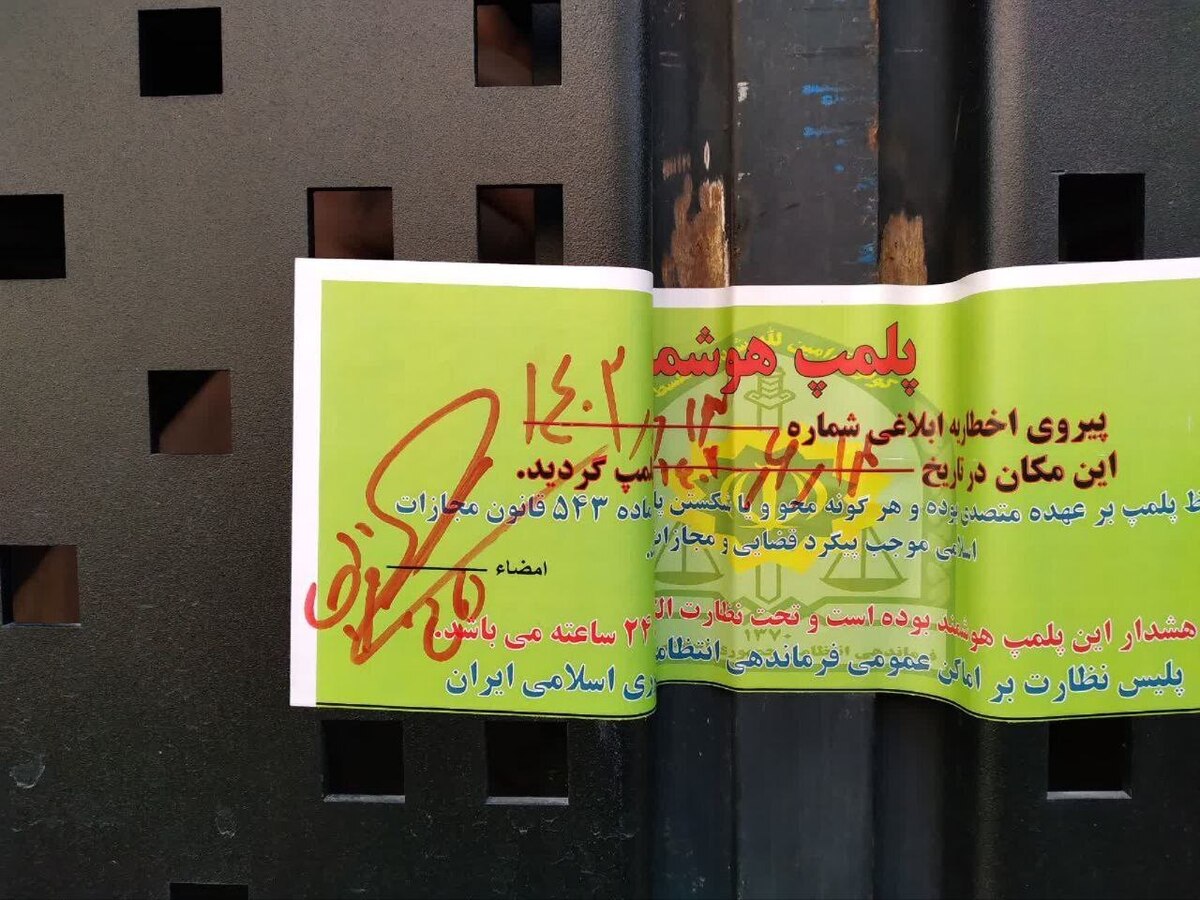 پلمپ هوشم
پیروی اخطاریه ابلاغی شماره
۱۴۰۲
این مکان در تاریخ ۱۴۰۲/۲/۱۳ لمپ گردید.
ظ پلمپ بر عهده متصدی بوده و هر گونه محو و یا شکستن پل ماده ۵۴۳ قانون مجازات
اسلامی موجب پیگرد قضایی و مجازات
امضاء
هشدار این پلمپ هوشمند بوده است و تحت نظارت الک ۲۴ ساعته می باشد.
پلیس نظارت بر اماکن عمومی فرماندهی انتظامی ری اسلامی ایران
۱۳۷۰